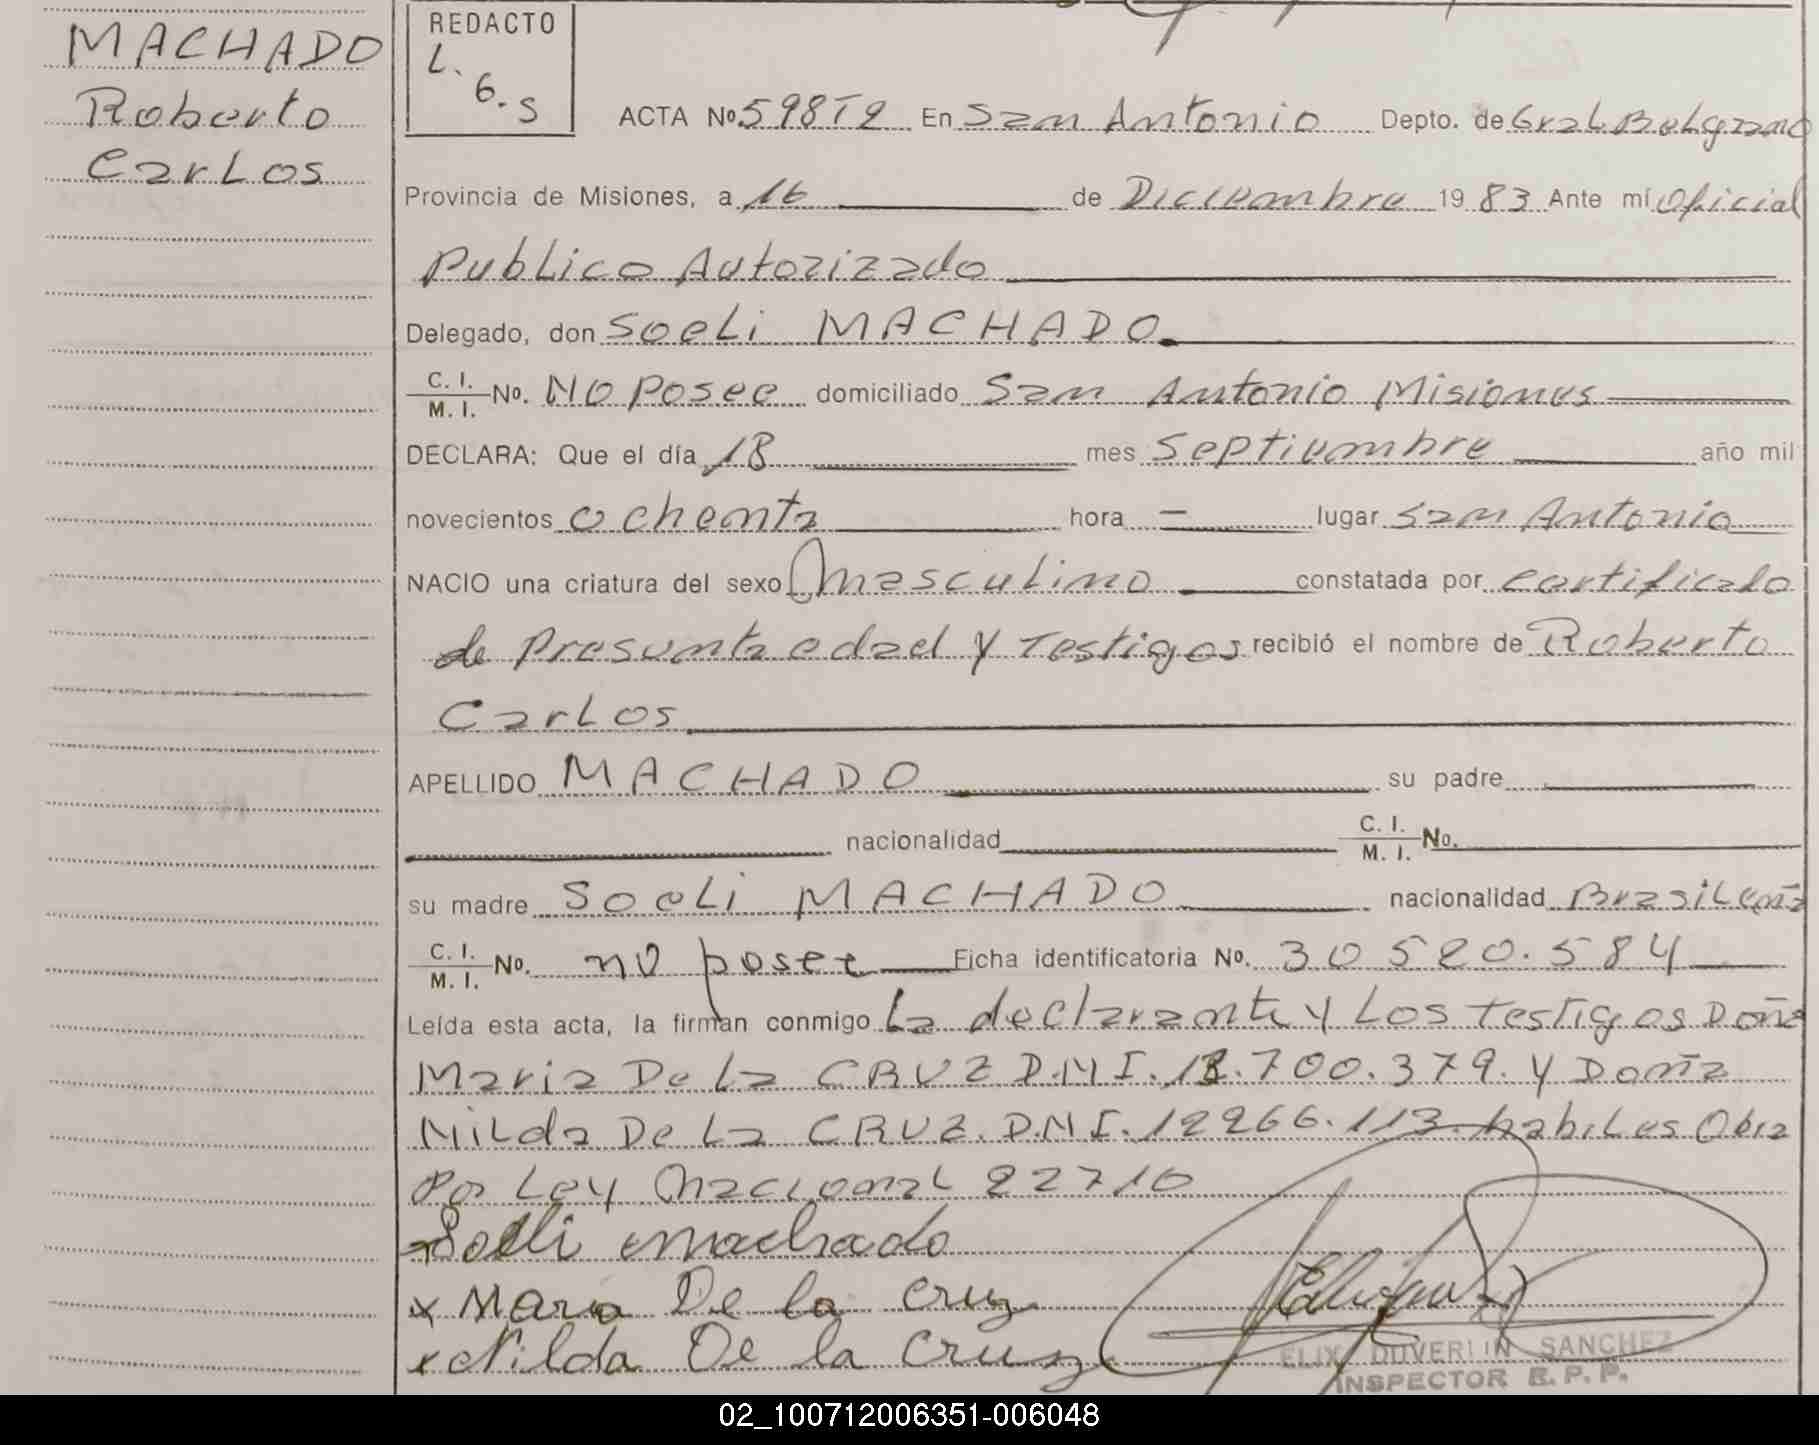 MACHADO
Roberto
Carlos
REDACTO
L.
6. S
ACTA Nº 598T2 En San Antonio Depto. de Gral Belgrano
Provincia de Misiones, a 16 de Diciembre 1983 Ante mí Oficial
Publico Autorizado
Delegado, don Soeli MACHADO.
C. I.
M. I. Nº. No Posee domiciliado San Antonio Misiones
DECLARA: Que el día 18 mes Septiembre año mil
novecientos ochenta hora – lugar San Antonio
NACIO una criatura del sexo Masculino constatada por certificado
de Presunta edad y Testigos recibió el nombre de Roberto
Carlos
APELLIDO MACHADO su padre
nacionalidad C. I.
M. I. No.
su madre Soeli MACHADO nacionalidad Brasileña
C. I.
M. I. Nº. no posee Ficha identificatoria Nº. 30 520.584
Leída esta acta, la firman conmigo La declarante y Los Testigos Doña
Maria De La CRUZ D.N I. 13.700.379. y Doña
Nilda De La CRUZ. D.N I. 12266.113 habiles Obra
Por Ley Nacional 22710
Soeli machado
x Maria De la Cruz
x Nilda De la Cruz
ELIX DUVERLIN SANCHEZ
INSPECTOR R. P. P.
02_100712006351-006048